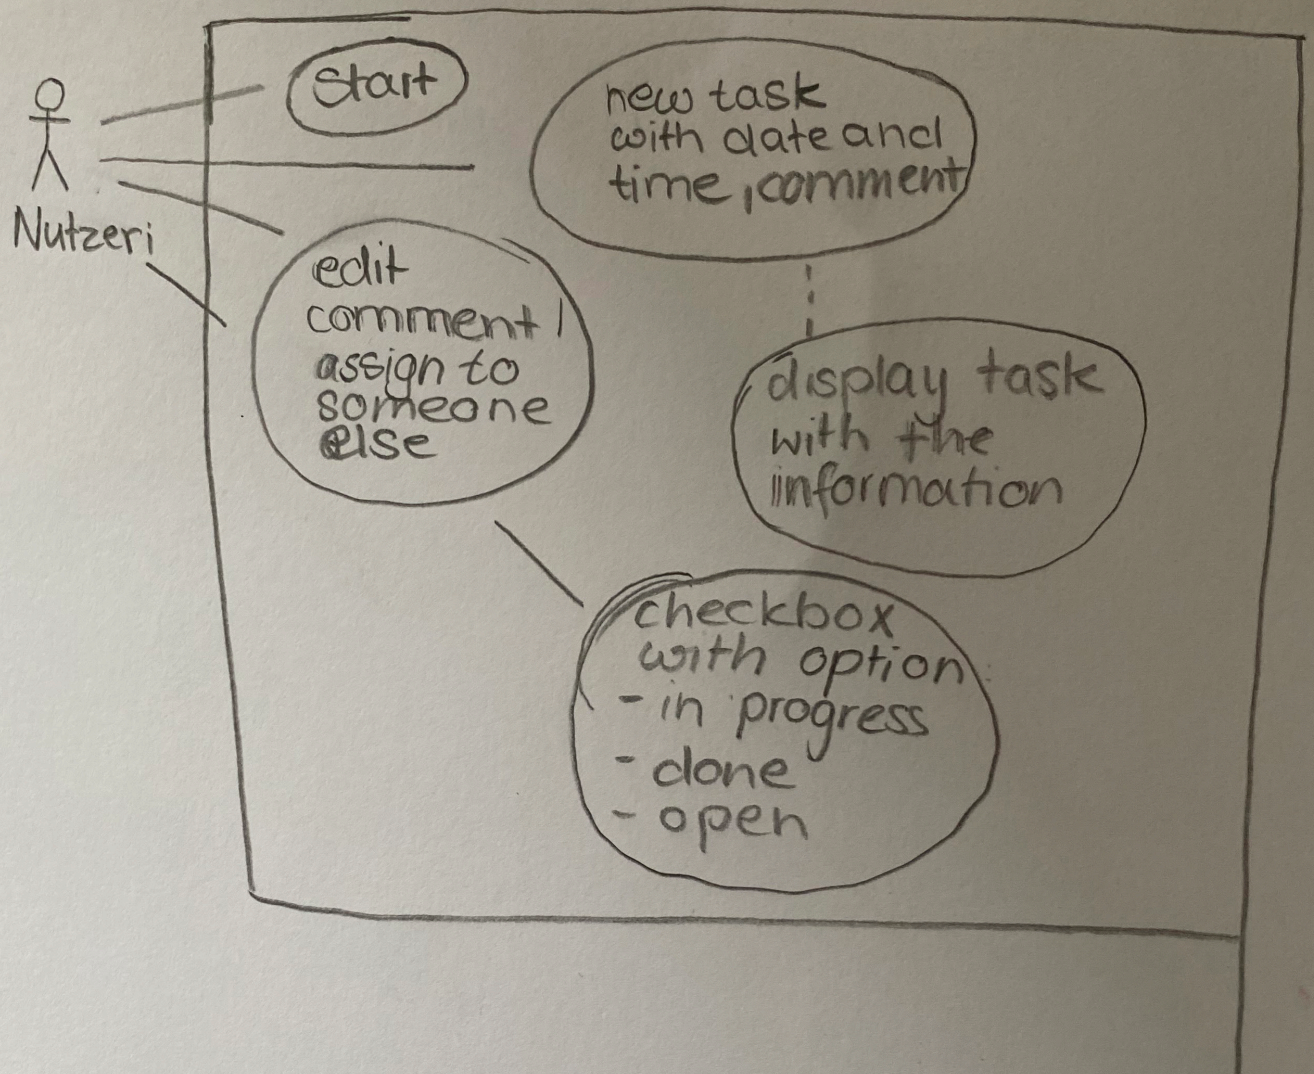 Start
new task
with date and
time, comment
Nutzeri
edit
comment /
assign to
someone
else
display task
with the
information
checkbox
with option
- in progress
- done
- open